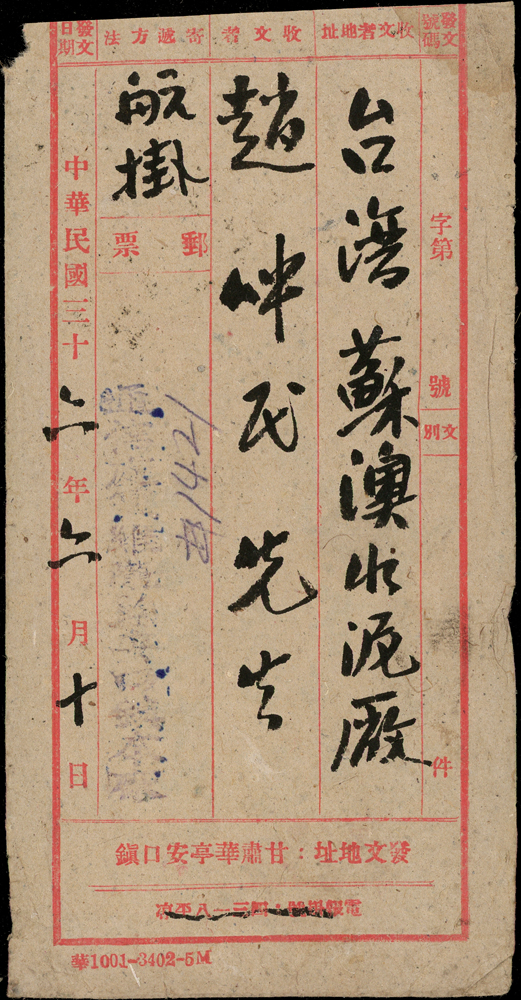 發文號碼
字第 號
文別
件
收文者地址
台灣蘇澳水泥廠
收文者
趙仲民先生
寄遞方法
航掛
郵票
1421
發文日期
中華民國三十六年六月十日
發文地址：甘肅華亭安口鎮
華1001-3402-5M